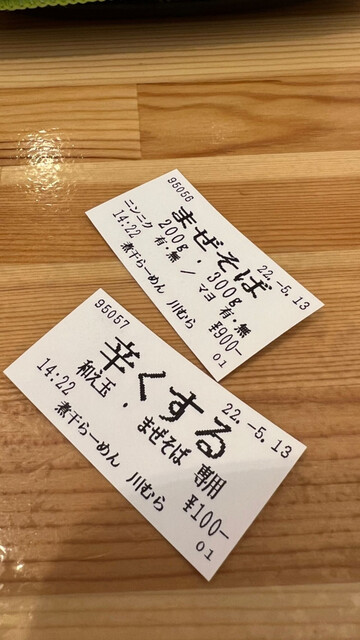 95056
まぜそば
200g・300g
ニンニク 有・無 / マヨ 有・無
14:22 22.-5.13
煮干らーめん 川むら ¥900-
01
95057
辛くする
和え玉・まぜそば 専用
14:22 22.-5.13
煮干らーめん 川むら ¥100-
01